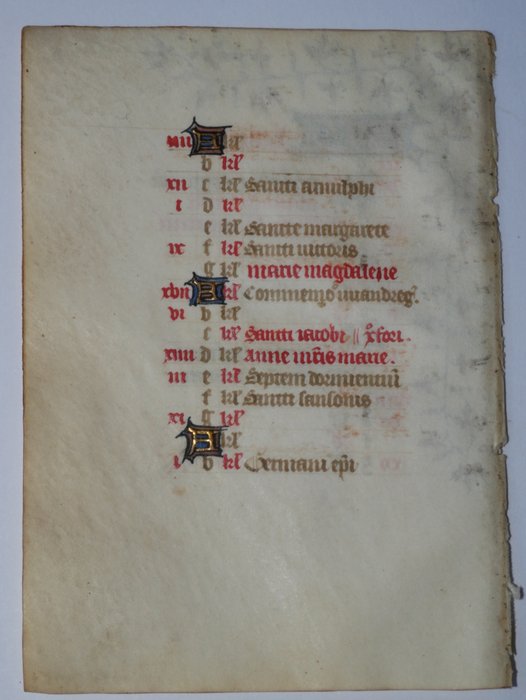 iiii A kl
b kl
xii c kl Sancti arnulphi
i d kl
e kl Sancte margarete
ix f kl Sancti victoris
g kl marie magdalene
xvii A kl Commemo uuandreg.
vi b kl
c kl Sancti iacobi xpfori.
xiiii d kl Anne mris marie.
iii e kl Septem dormientiu
f kl Sancti sansonis
xi g kl
A kl
i b kl Germani epi